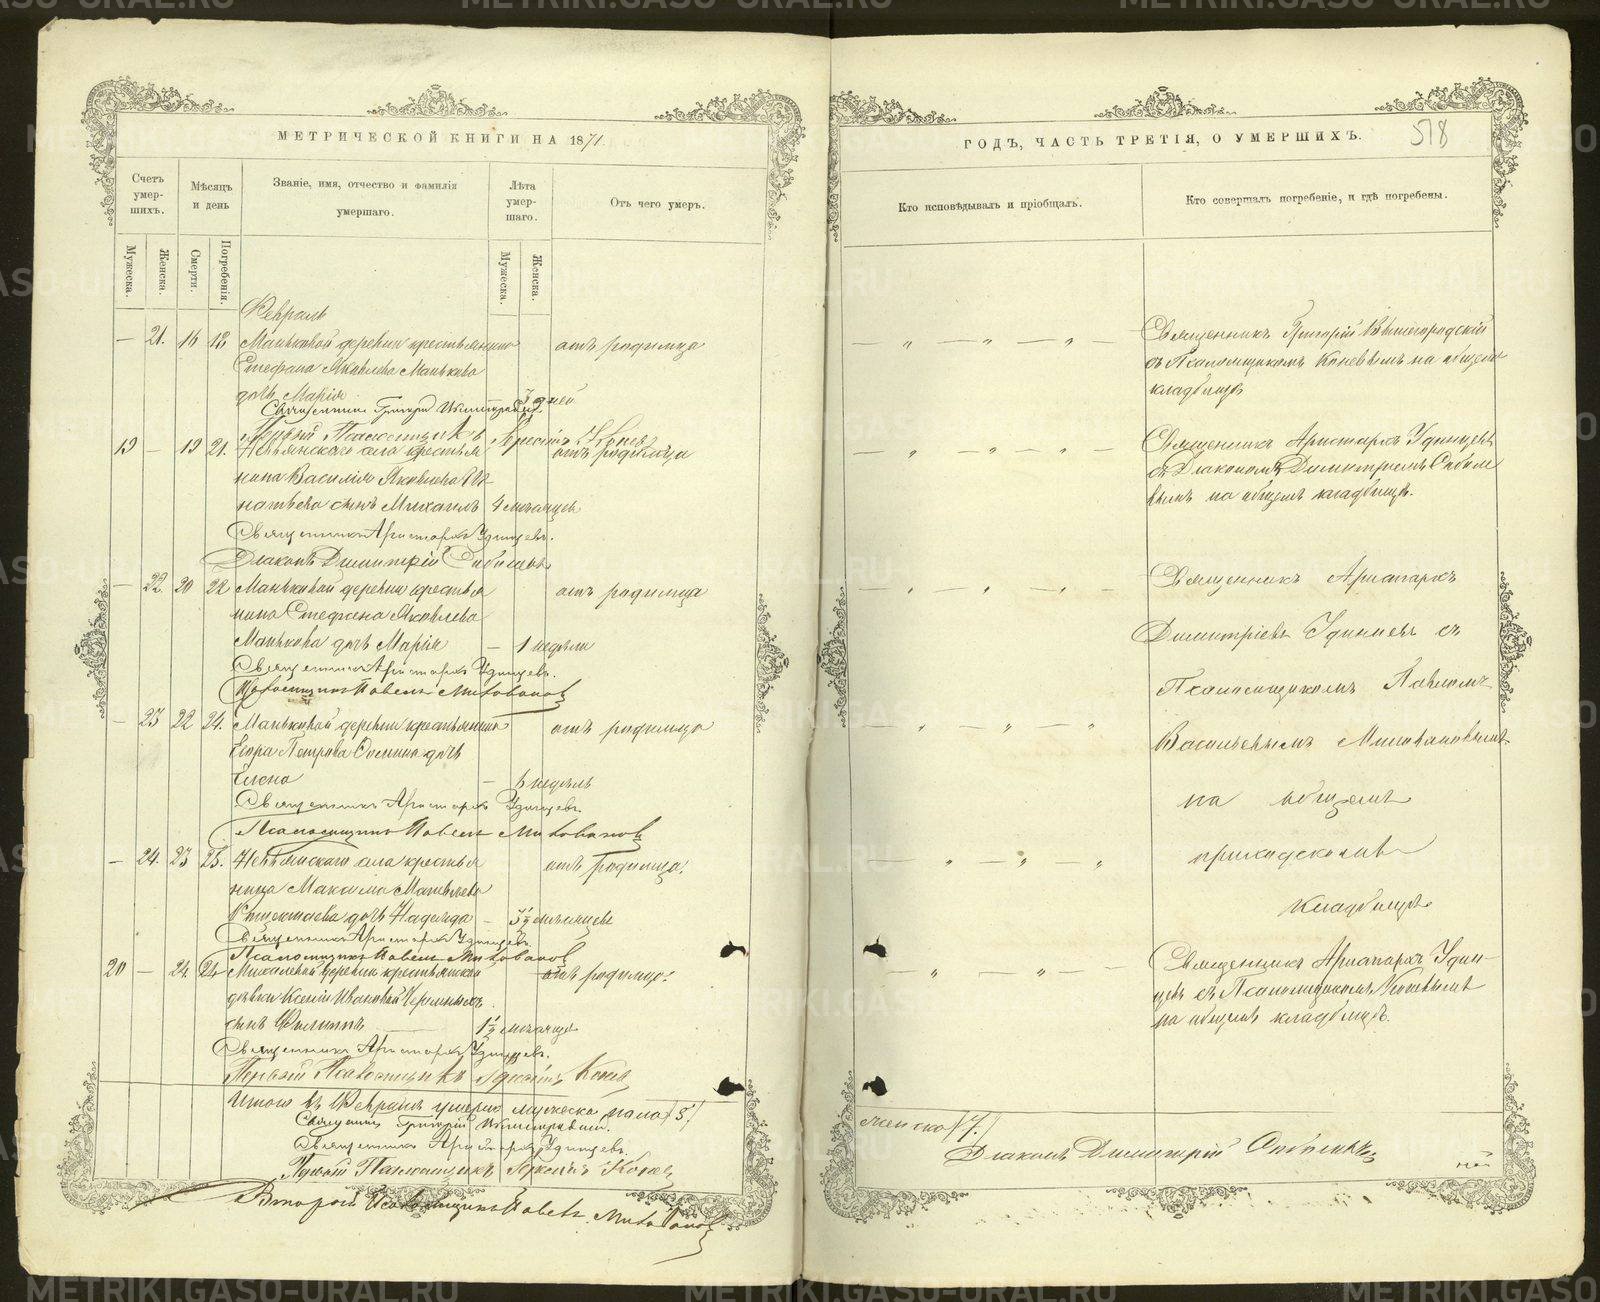 МЕТРИЧЕСКОЙ КНИГИ НА 1871.
ГОДЪ, ЧАСТЬ ТРЕТІЯ, О УМЕРШИХЪ.
518
Счетъ умершихъ.
Мѣсяцъ и день
Званіе, имя, отчество и фамилія умершаго.
Лѣта умершаго.
Отъ чего умеръ.
Кто исповѣдывалъ и пріобщалъ.
Кто совершалъ погребеніе, и гдѣ погребены.
Мужеска.
Женска.
Смерти.
Погребенія.
Мужеска.
Женска.
Февраль
— 21. 16 18 Маньковой деревни крестьянина отъ родимца
Стефана Яковлева Манькова
дочь Марія 3 дней
Священникъ Григорій
Священникъ Григорій Вышегородскій
съ Псаломщикомъ Коневымъ на общемъ
кладбищѣ
Первый Псаломщикъ Конев
19 — 19 21. Невьянскаго села крестья отъ родимца
нина Василія Яковлева Иг
натьева сынъ Михаилъ 4 мѣсяцевъ
Священникъ Аристархъ Удинцевъ.
Діаконъ Димитрій
Священникъ Аристархъ Удинцевъ
съ Діакономъ Димитріемъ
на общемъ кладбищѣ.
— 22. 20 22 Маньковой деревни крестья отъ родимца
нина Стефана Яковлева
Манькова дочь Марія — 1 недѣли
Священникъ Аристархъ Удинцевъ.
Псаломщикъ Павелъ Миловановъ
— 23 22 24. Маньковой деревни крестьянина отъ родимца
Егора Петрова дочь
Елена — 6 недѣль
Священникъ Аристархъ Удинцевъ.
Псаломщикъ Павелъ Миловановъ
— 24. 23 25. Невьянскаго села крестья отъ родимца.
нина Максима Матвѣева
дочь Надежда — 3½ мѣсяцевъ
Священникъ Аристархъ Удинцевъ.
Псаломщикъ Павелъ Миловановъ
Священникъ Аристархъ
Димитріевъ Удинцевъ съ
Псаломщикомъ Павломъ
Васильевымъ Миловановымъ
на общемъ
приходскомъ
кладбищѣ
20 — 24 24 Михалевой деревни крестьянской отъ родимца.
дѣвки Ксеніи Ивановой
сынъ Филиппъ 1½ мѣсяца
Священникъ Аристархъ Удинцевъ.
Первый Псаломщикъ Конев
Священникъ Аристархъ Удин-
цевъ съ Псаломщикомъ Коневымъ
на общемъ кладбищѣ.
Итого въ Февралѣ умерло мужеска пола /5/
женска /7./
Священникъ Григорій
Священникъ Аристархъ Удинцевъ.
Первый Псаломщикъ Конев
Второй Псаломщикъ Павелъ Миловановъ
Діаконъ Димитрій
METRIKI.GASO-URAL.RU